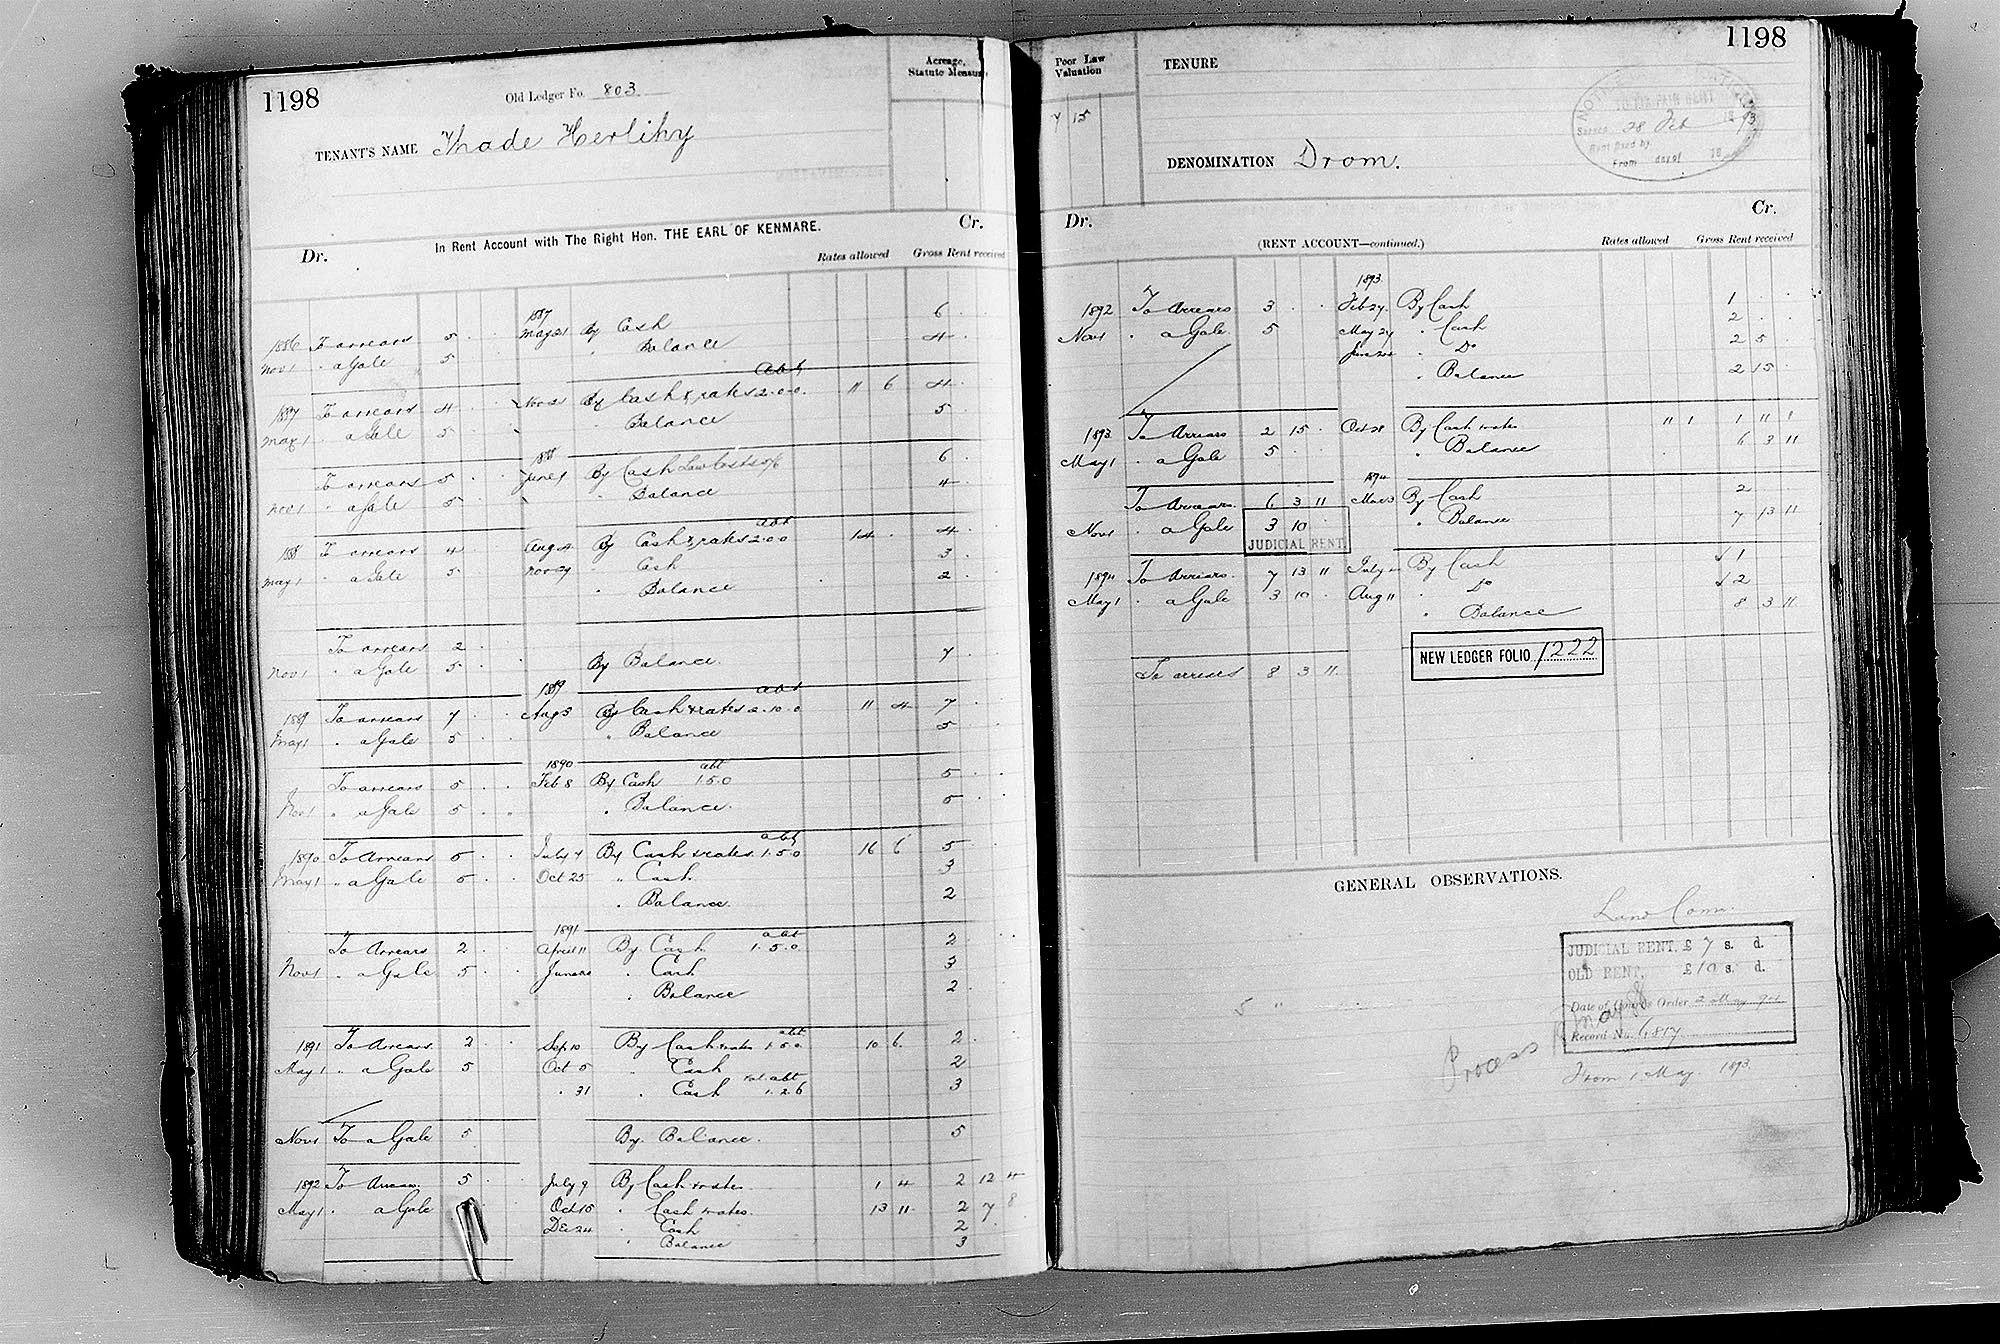 1198
Old Ledger Fo. 803
Acreage, Statute Measure
TENANT'S NAME Thade Herlihy
In Rent Account with The Right Hon. THE EARL OF KENMARE.
Dr. Cr.
Rates allowed Gross Rent received
1887
1886 To arrears 5 May 21 By Cash 6
Nov 1 " a Gale 5 " Balance 4
abt
1887 To arrears 4 Nov 21 By Cash & rates 2.0.0. 11 6 4
May 1 " a Gale 5 Balance 5
1888
To arrears 5 June 9 By Cash Law Costs 6
Nov 1 " a Gale 5 " Balance 4
abt
1888 To arrears 4 Aug 4 By Cash & rates 2.0.0 14 4
May 1 " a Gale 5 Nov " Cash 3
" Balance 2
To arrears 2
Nov 1 " a Gale 5 By Balance. 7
1889 abt
1889 To arrears 7 Aug 5 By Cash & rates 2.10.0 11 4 7
May 1 " a Gale 5 " Balance 5
1890 abt
To arrears 5 Feb 8 By Cash 1.5.0 5
Nov 1 " a Gale 5 " Balance. 5
abt
1890 To Arrears 5 July 7 By Cash & rates. 1.5.0 16 6 5
May 1 " a Gale 5 Oct 25 " Cash 3
" Balance. 2
1891 abt
To Arrears 2 April 11 By Cash 1.5.0 2
Nov 1 " a Gale 5 June 20 " Cash 3
" Balance 2
abt
1891 To Arrears. 2 Sep 10 By Cash & rates 1.5.0 10 6 2
May 1 " a Gale 5 Oct 5 " Cash 2
" 31 " Cash abt 1.2.6 3
Nov 1 To a Gale 5 By Balance. 5
1892 To Arrears. 5 July 9 By Cash & rates 1 4 2 12 4
May 1 " a Gale Oct 15 " Cash & rates. 13 11 2 7 8
Dec 24 " Cash 2
" Balance 3
1198
Poor Law Valuation
7 15
TENURE
TO FIX FAIR RENT
Served 28 Feb 1893
Rent fixed by
From day of 18
DENOMINATION Drom.
Dr. Cr.
(RENT ACCOUNT—continued.)
Rates allowed Gross Rent received
1893
1892 To Arrears 3 Feb 27 By Cash 1
Nov 1 " a Gale. 5 May 27 " Cash 2
June " Do 2 5
" Balance 2 15
1893 To Arrears 2 15 Oct 28 By Cash & rates 11 1 1 11 1
May 1 " a Gale 5 " Balance 6 3 11
1894
To Arrears. 6 3 11 Mar 3 By Cash 2
Nov 1 " a Gale 3 10 " Balance 7 13 11
JUDICIAL RENT
1894 To Arrears. 7 13 11 July By Cash 1
May 1 " a Gale 3 10 Aug 11 " Do 2
" Balance 8 3 11
NEW LEDGER FOLIO 1222
To arrears 8 3 11
GENERAL OBSERVATIONS.
Land Comn.
JUDICIAL RENT. £ 7 s. d.
OLD RENT, £ 10 s. d.
Date of Court's Order 2 May 94
Record No. 6817
From 1 May 1893
Process
5 "